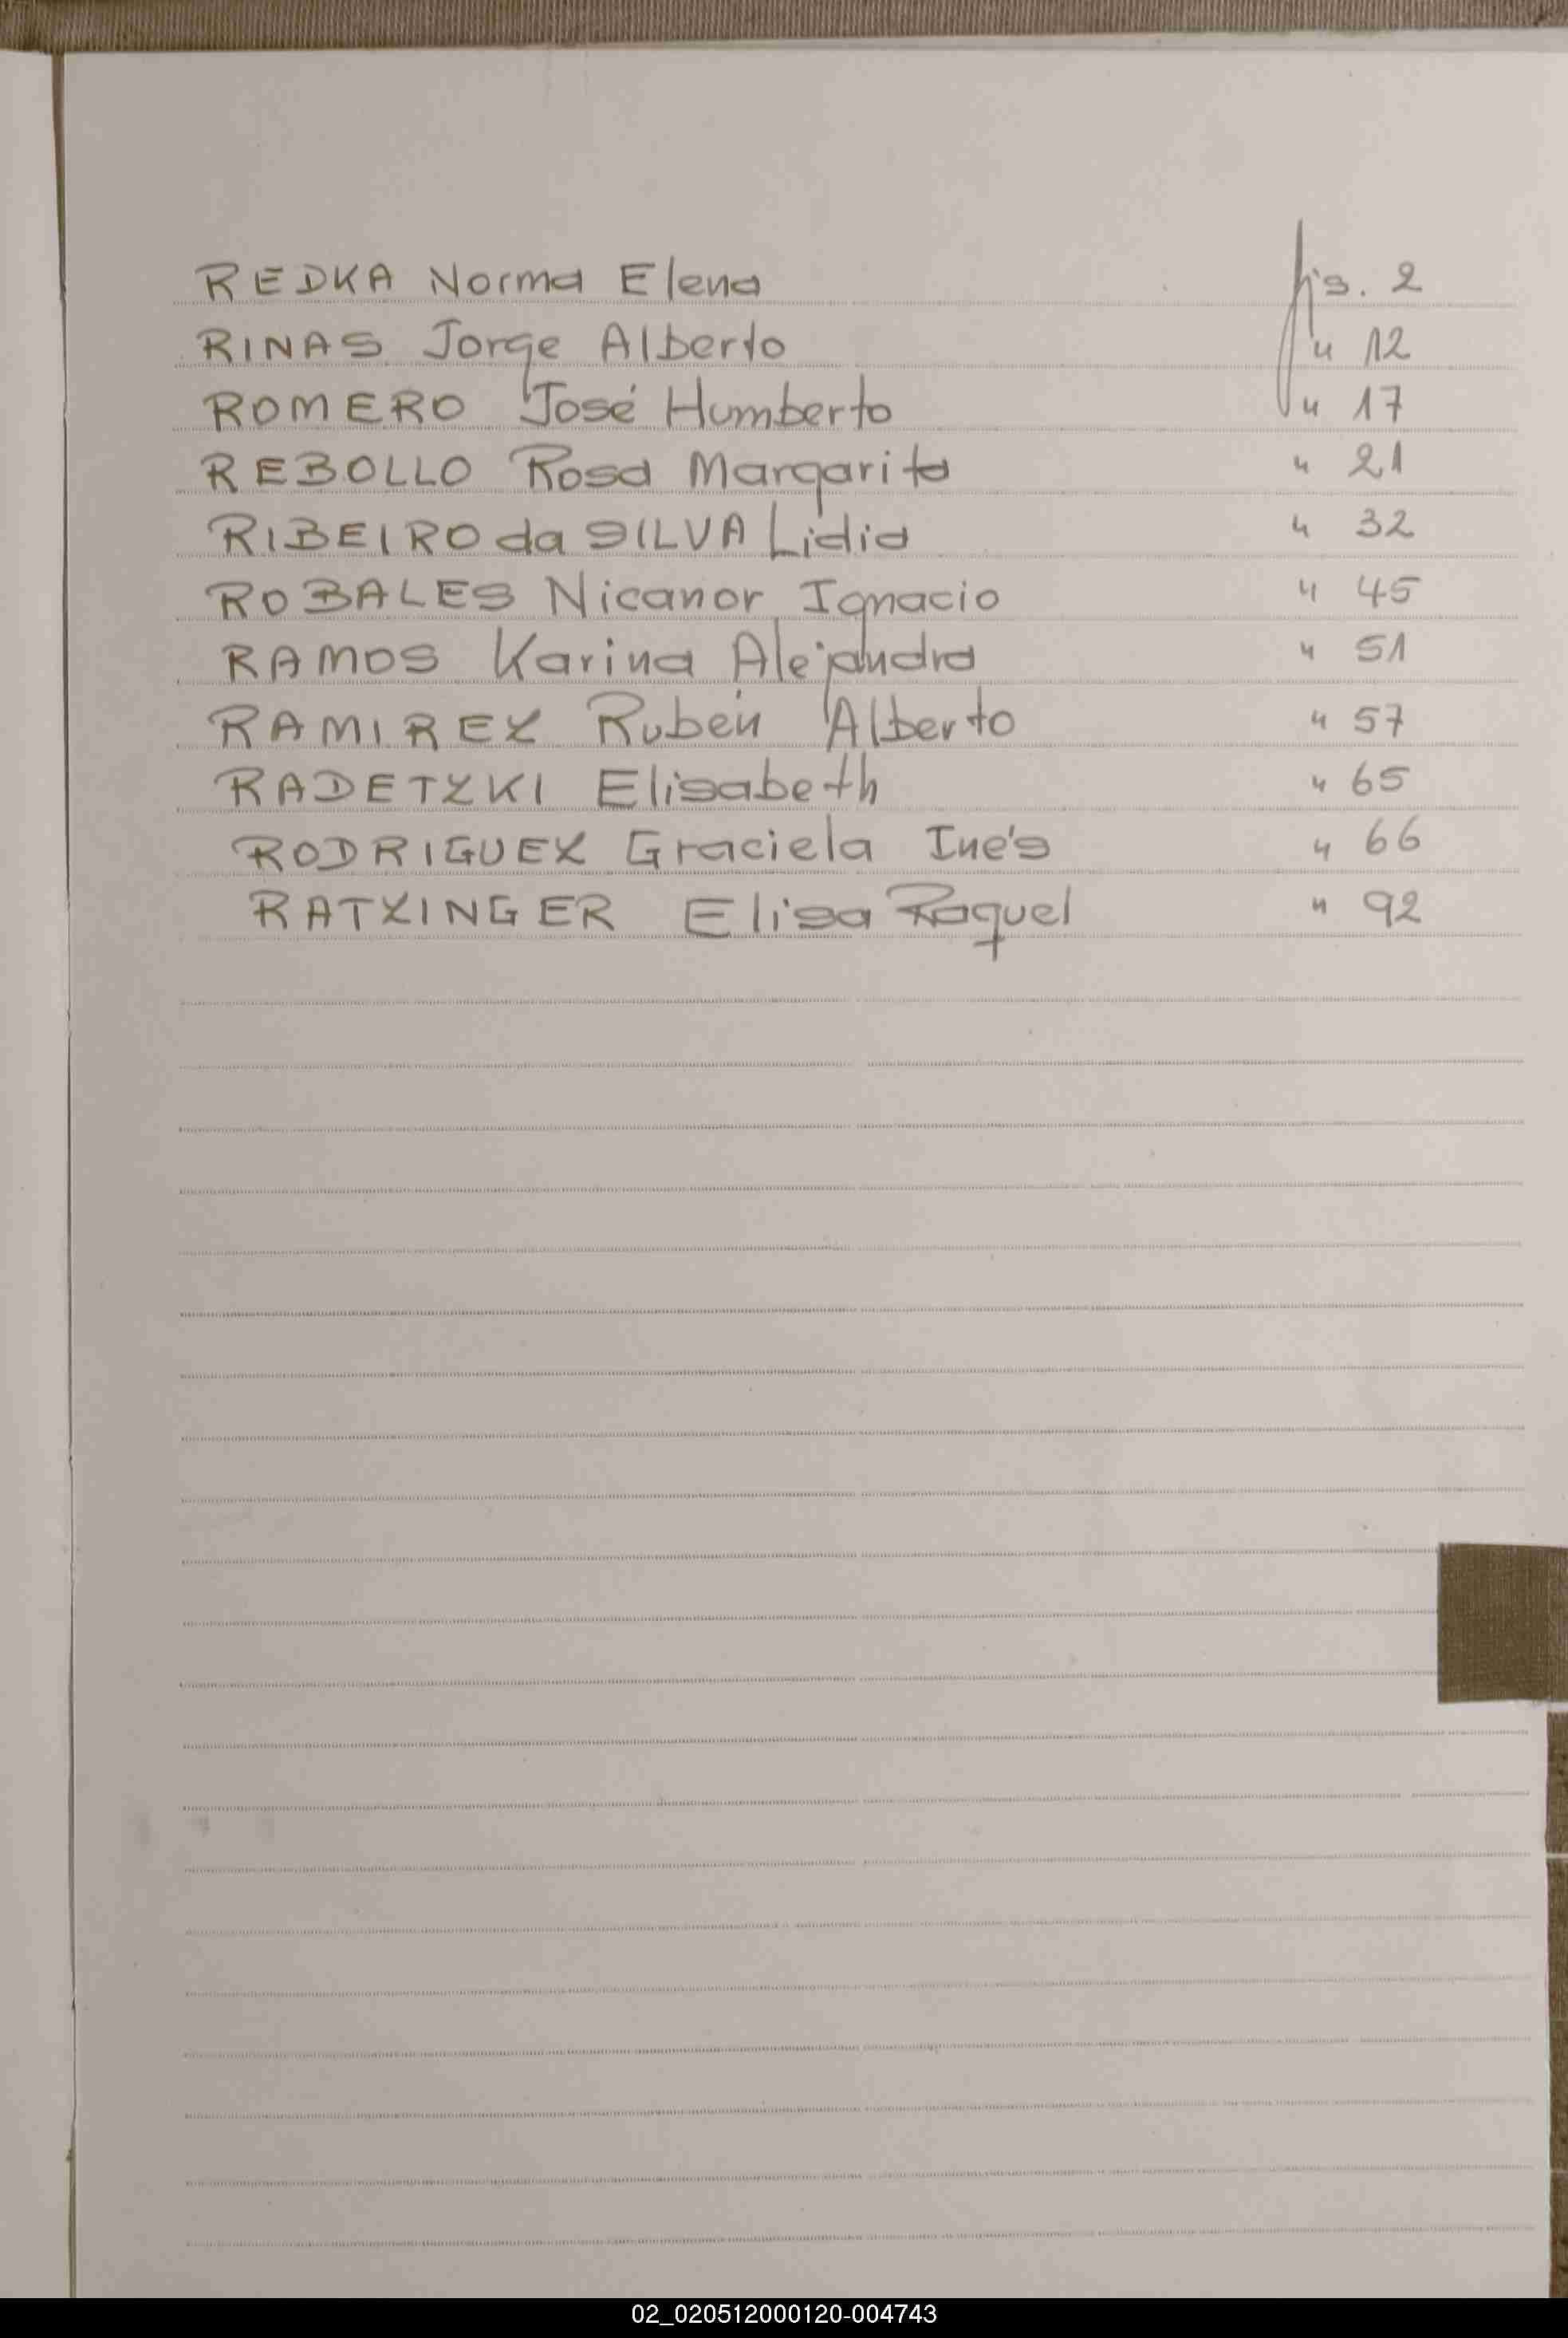 REDKA Norma Elena fjs. 2
RINAS Jorge Alberto " 12
ROMERO José Humberto " 17
REBOLLO Rosa Margarita " 21
RIBEIRO da SILVA Lidia " 32
ROBALES Nicanor Ignacio " 45
RAMOS Karina Alejandra " 51
RAMIREZ Rubén Alberto " 57
RADETZKI Elisabeth " 65
RODRIGUEZ Graciela Inés " 66
RATZINGER Elisa Raquel " 92
02_020512000120-004743